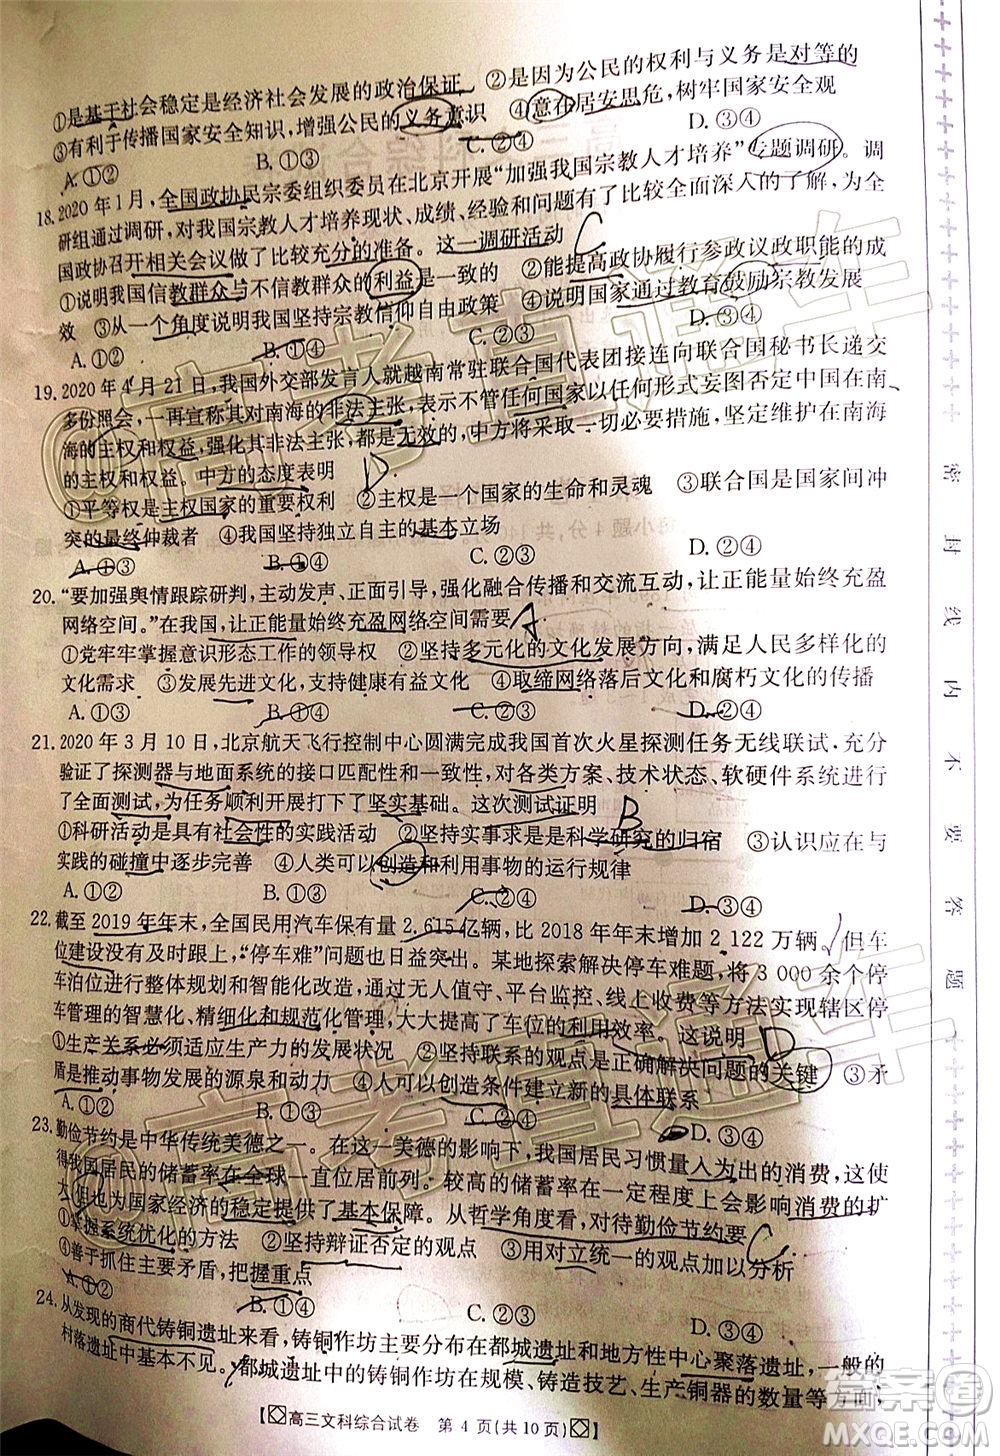 ①是基于社会稳定是经济社会发展的政治保证 ②是因为公民的权利与义务是对等的
③有利于传播国家安全知识，增强公民的义务意识 ④意在居安思危，树牢国家安全观
A.①② B.①③ C.②④ D.③④
18.2020年1月，全国政协民宗委组织委员在北京开展“加强我国宗教人才培养”专题调研。调
研组通过调研，对我国宗教人才培养现状、成绩、经验和问题有了比较全面深入的了解，为全
国政协召开相关会议做了比较充分的准备。这一调研活动 C
①说明我国信教群众与不信教群众的利益是一致的 ②能提高政协履行参政议政职能的成
效 ③从一个角度说明我国坚持宗教信仰自由政策 ④说明国家通过教育鼓励宗教发展
A.①② B.①④ C.②③ D.③④
19.2020年4月21日，我国外交部发言人就越南常驻联合国代表团接连向联合国秘书长递交
多份照会，一再宣称其对南海的非法主张，表示不管任何国家以任何形式妄图否定中国在南
海的主权和权益，强化其非法主张，都是无效的，中方将采取一切必要措施，坚定维护在南海
的主权和权益。中方的态度表明 D
①平等权是主权国家的重要权利 ②主权是一个国家的生命和灵魂 ③联合国是国家间冲
突的最终仲裁者 ④我国坚持独立自主的基本立场
A.①③ B.①④ C.②③ D.②④
20.“要加强舆情跟踪研判，主动发声、正面引导，强化融合传播和交流互动，让正能量始终充盈
网络空间。”在我国，让正能量始终充盈网络空间需要 A
①党牢牢掌握意识形态工作的领导权 ②坚持多元化的文化发展方向，满足人民多样化的
文化需求 ③发展先进文化，支持健康有益文化 ④取缔网络落后文化和腐朽文化的传播
A.①③ B.①④ C.②③ D.②④
21.2020年3月10日，北京航天飞行控制中心圆满完成我国首次火星探测任务无线联试，充分
验证了探测器与地面系统的接口匹配性和一致性，对各方技术接口、技术状态、软硬件系统进行了
全面测试，为任务顺利开展打下了坚实基础。这次测试证明 B
①科研活动是具有社会性的实践活动 ②坚持实事求是是科学研究的归宿 ③认识应在与
实践的碰撞中逐步完善 ④人类可以创造和利用事物的运行规律
A.①② B.①③ C.②④ D.③④
22.截至2019年年末，全国民用汽车保有量2.615亿辆，比2018年年末增加2 122万辆，但车
位建设没有及时跟上，“停车难”问题日益突出。某地探索解决停车难题，将3 000余个停
车泊位进行整体规划和智能化改造，通过无人值守、平台监控、线上收费等方法实现辖区停
车管理的智慧化、精细化和规范化管理，大大提高了车位的利用效率。这说明 D
①生产关系必须适应生产力的发展状况 ②坚持联系的观点是正确解决问题的关键 ③矛
盾是推动事物发展的源泉和动力 ④人可以创造条件建立新的具体联系
A.①② B.①③ C.②④ D.③④
23.勤俭节约是中华传统美德之一。在这一美德的影响下，我国居民习惯量入为出的消费，这使
得我国居民的储蓄率在全球一直位居前列。较高的储蓄率在一定程度上会影响消费的扩
大，但也为国家经济的稳定提供了基本保障。从哲学角度看，对待勤俭节约要
①掌握系统优化的方法 ②坚持辩证否定的观点 ③用对立统一的观点加以分析
④善于抓住主要矛盾，把握重点
A.①② B.①④ C.②③ D.③④
24.从发现的商代铸铜遗址来看，铸铜作坊主要分布在都城遗址和地方性中心聚落遗址，一般的
村落遗址中基本不见。都城遗址中的铸铜作坊在规模、铸造技艺、生产铜器的数量等方面，
【高三文科综合试卷 第4页(共10页)】
密 封 线 内 不 要 答 题
@高考直通车
答案圈